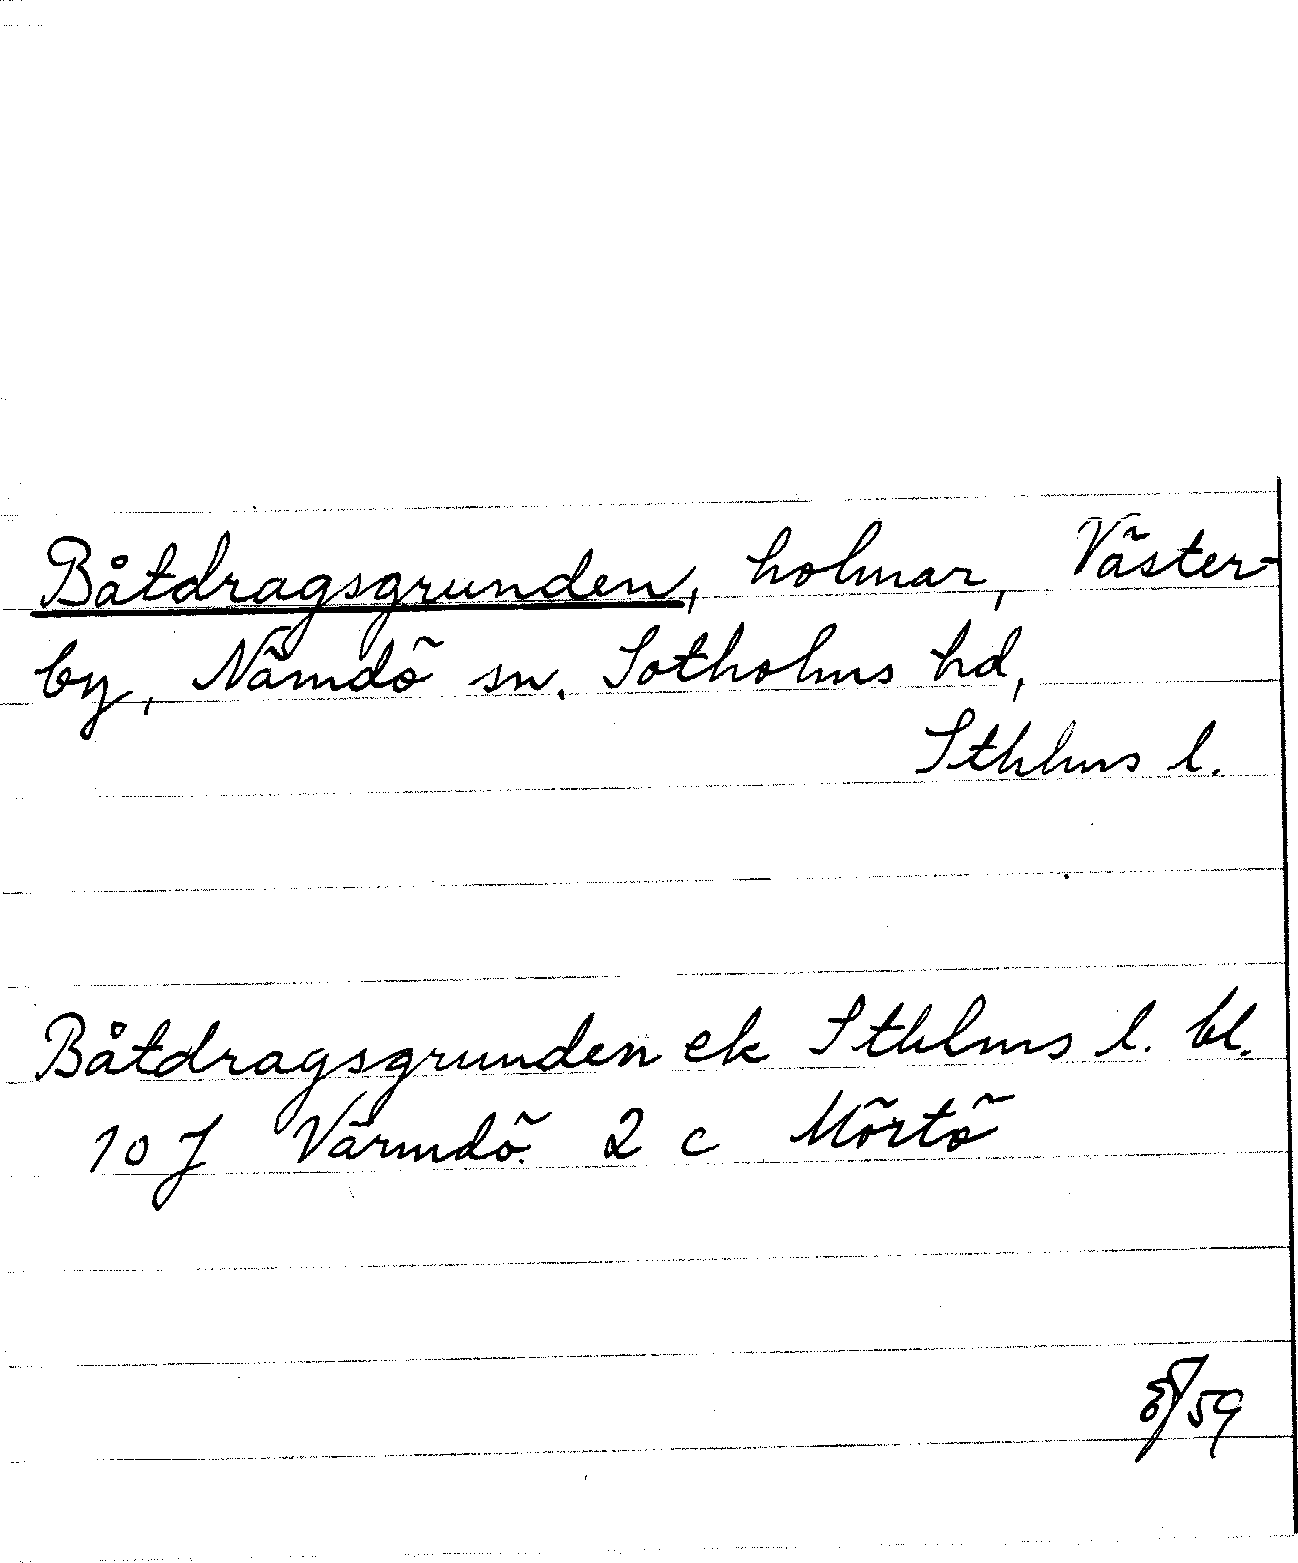 Båtdragsgrunden, holmar, Väster-
by, Nämdö sn. Sotholms hd,
Sthlms l.
Båtdragsgrunden ek Sthlms l. bl.
10 J Värmdö. 2 c Mörtö
/59